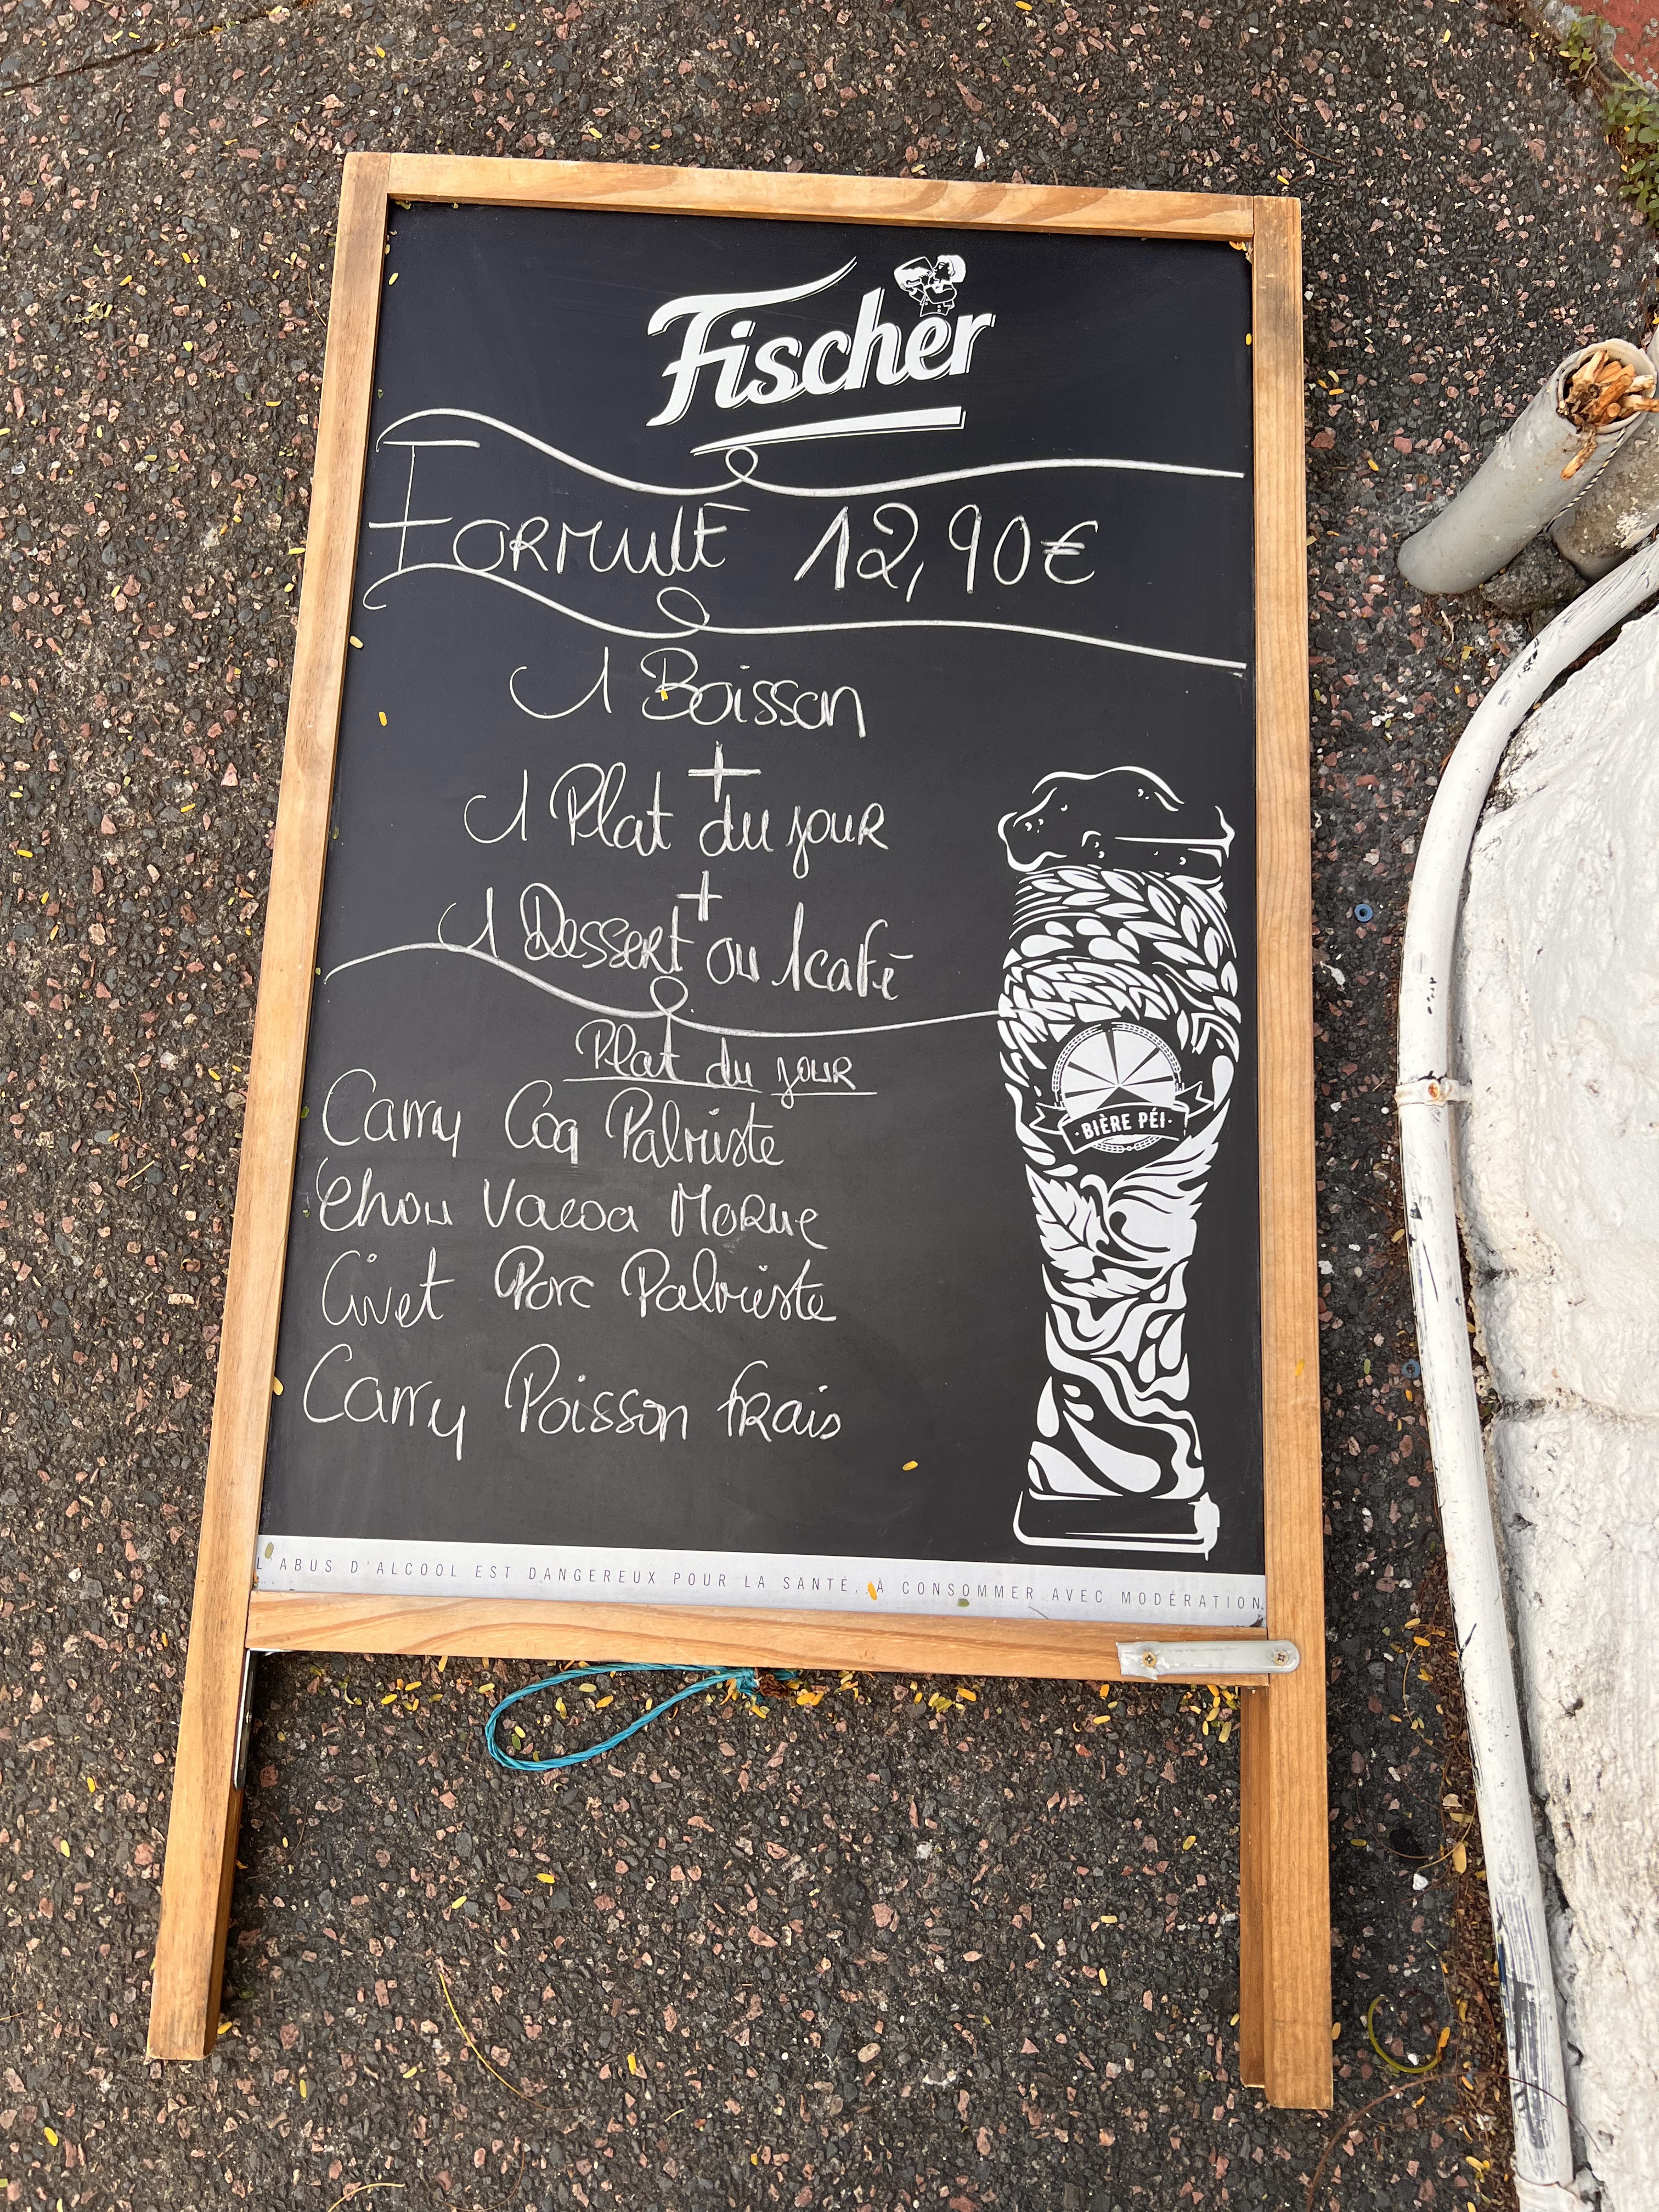 Fischer
FORMULE 12,90€
1 Boisson
+
1 Plat du jour
+
1 Dessert ou 1 café
Plat du jour
Carry Coq Palmiste
Chou Vacoa Morue
Civet Porc Palmiste
Carry Poisson frais
·BIÈRE PÉI·
L'ABUS D'ALCOOL EST DANGEREUX POUR LA SANTÉ, À CONSOMMER AVEC MODÉRATION